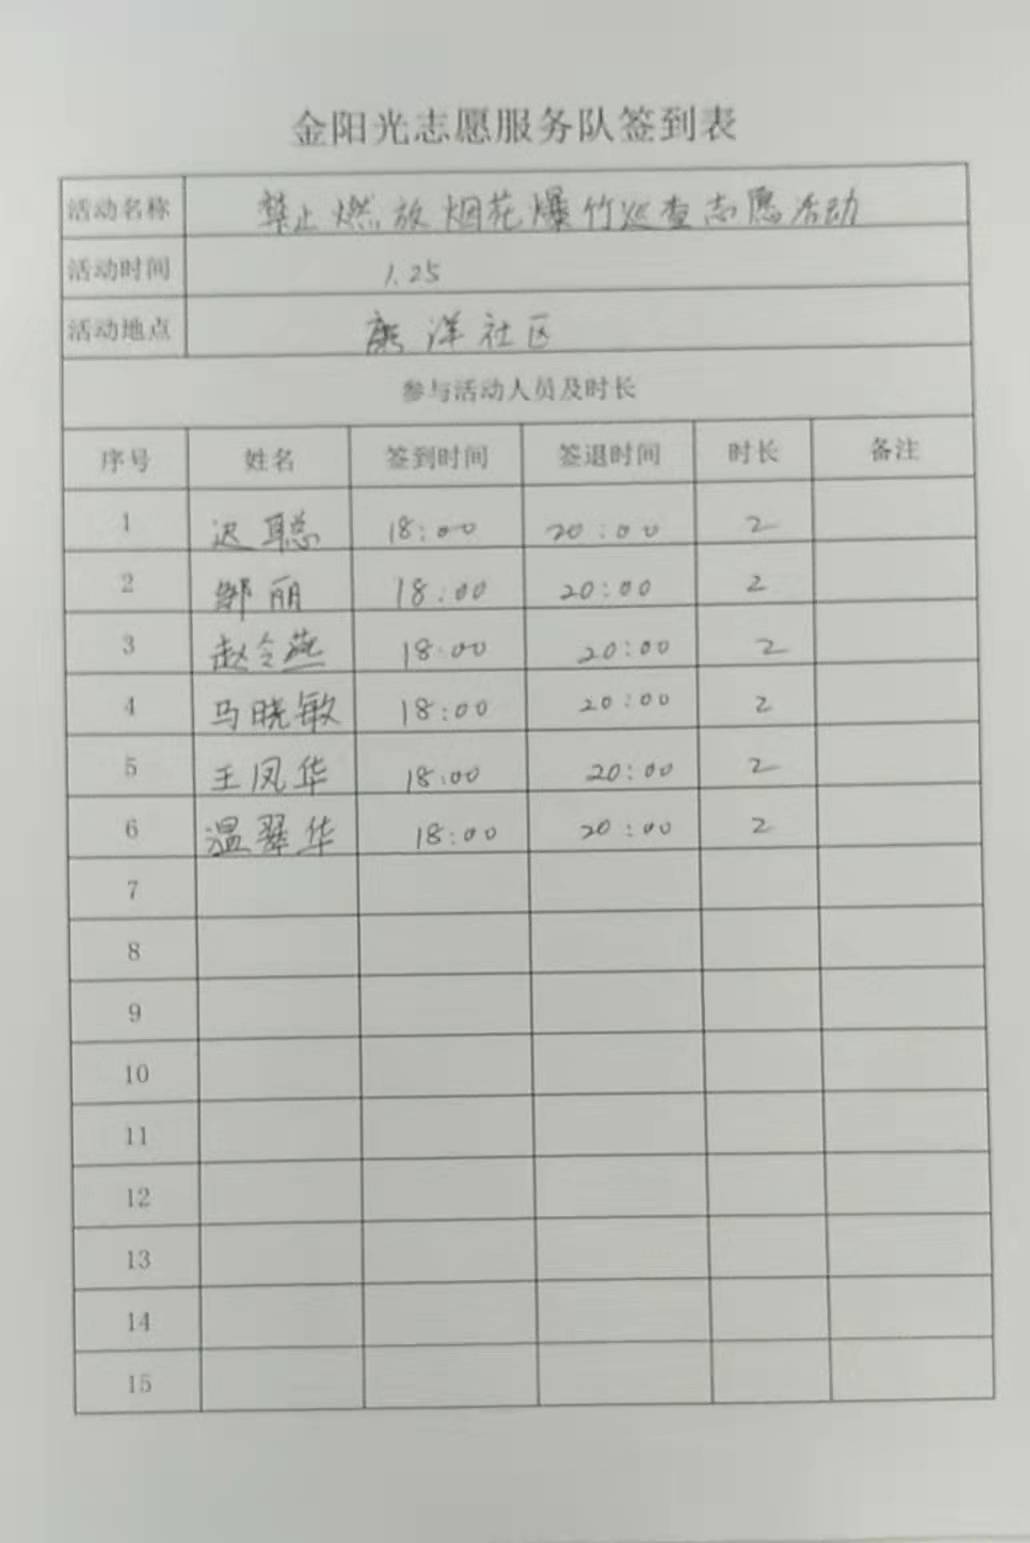 金阳光志愿服务队签到表
活动名称 禁止燃放烟花爆竹巡查志愿活动
活动时间 1.25
活动地点 洋社区
参与活动人员及时长
序号 姓名 签到时间 签退时间 时长 备注
1 迟聪 18:00 20:00 2
2 邹丽 18:00 20:00 2
3 赵令燕 18:00 20:00 2
4 马晓敏 18:00 20:00 2
5 王凤华 18:00 20:00 2
6 温翠华 18:00 20:00 2
7
8
9
10
11
12
13
14
15